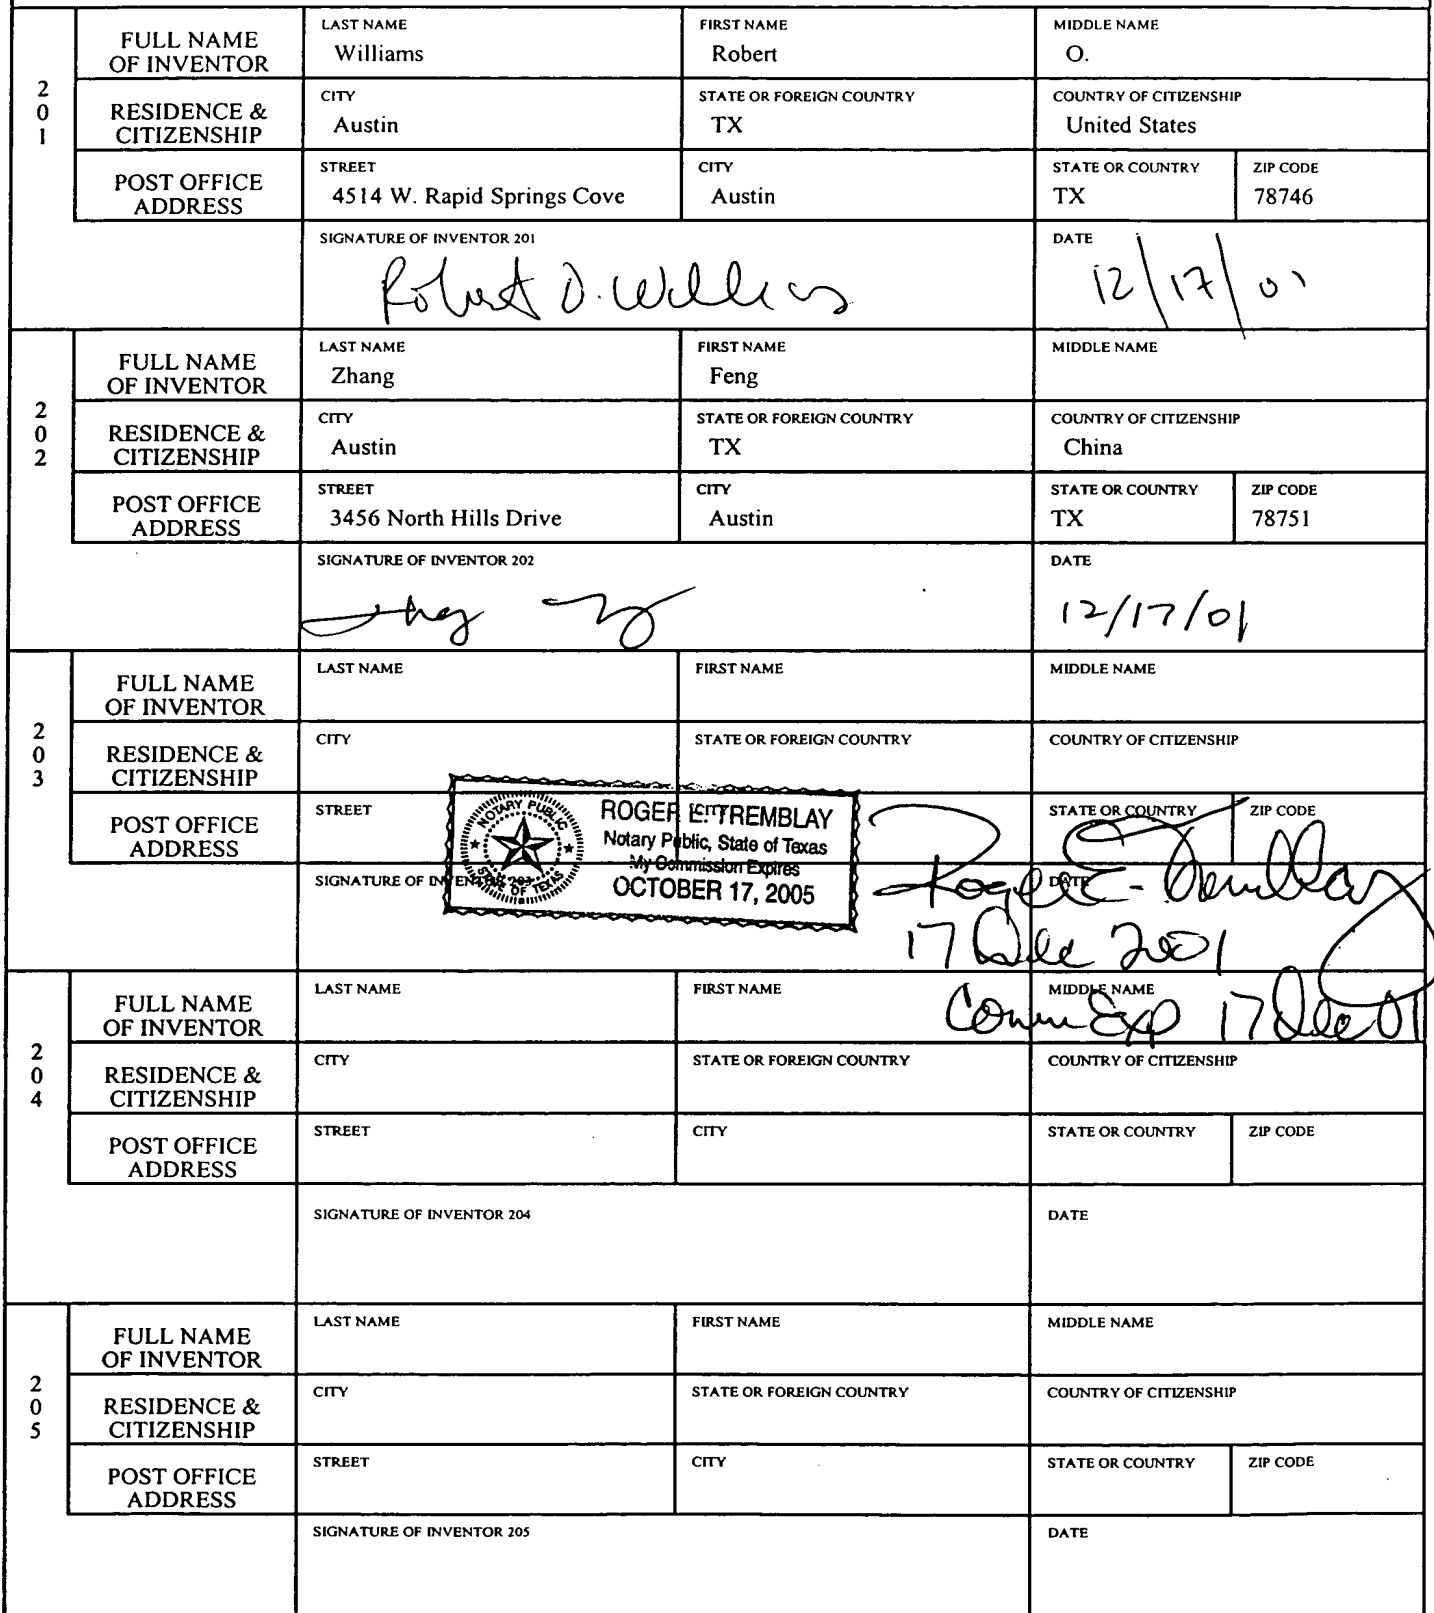 201
FULL NAME OF INVENTOR
LAST NAME
Williams
FIRST NAME
Robert
MIDDLE NAME
O.
RESIDENCE & CITIZENSHIP
CITY
Austin
STATE OR FOREIGN COUNTRY
TX
COUNTRY OF CITIZENSHIP
United States
POST OFFICE ADDRESS
STREET
4514 W. Rapid Springs Cove
CITY
Austin
STATE OR COUNTRY
TX
ZIP CODE
78746
SIGNATURE OF INVENTOR 201
Robert O. Williams
DATE
12/17/01
202
FULL NAME OF INVENTOR
LAST NAME
Zhang
FIRST NAME
Feng
MIDDLE NAME
RESIDENCE & CITIZENSHIP
CITY
Austin
STATE OR FOREIGN COUNTRY
TX
COUNTRY OF CITIZENSHIP
China
POST OFFICE ADDRESS
STREET
3456 North Hills Drive
CITY
Austin
STATE OR COUNTRY
TX
ZIP CODE
78751
SIGNATURE OF INVENTOR 202
DATE
12/17/01
203
FULL NAME OF INVENTOR
LAST NAME
FIRST NAME
MIDDLE NAME
RESIDENCE & CITIZENSHIP
CITY
STATE OR FOREIGN COUNTRY
COUNTRY OF CITIZENSHIP
POST OFFICE ADDRESS
STREET
CITY
STATE OR COUNTRY
ZIP CODE
SIGNATURE OF INVENTOR 203
DATE
NOTARY PUBLIC
STATE OF TEXAS
ROGER E. TREMBLAY
Notary Public, State of Texas
My Commission Expires
OCTOBER 17, 2005
Roger E. Tremblay
17 Dec 2001
Comm Exp 17 Dec 01
204
FULL NAME OF INVENTOR
LAST NAME
FIRST NAME
MIDDLE NAME
RESIDENCE & CITIZENSHIP
CITY
STATE OR FOREIGN COUNTRY
COUNTRY OF CITIZENSHIP
POST OFFICE ADDRESS
STREET
CITY
STATE OR COUNTRY
ZIP CODE
SIGNATURE OF INVENTOR 204
DATE
205
FULL NAME OF INVENTOR
LAST NAME
FIRST NAME
MIDDLE NAME
RESIDENCE & CITIZENSHIP
CITY
STATE OR FOREIGN COUNTRY
COUNTRY OF CITIZENSHIP
POST OFFICE ADDRESS
STREET
CITY
STATE OR COUNTRY
ZIP CODE
SIGNATURE OF INVENTOR 205
DATE